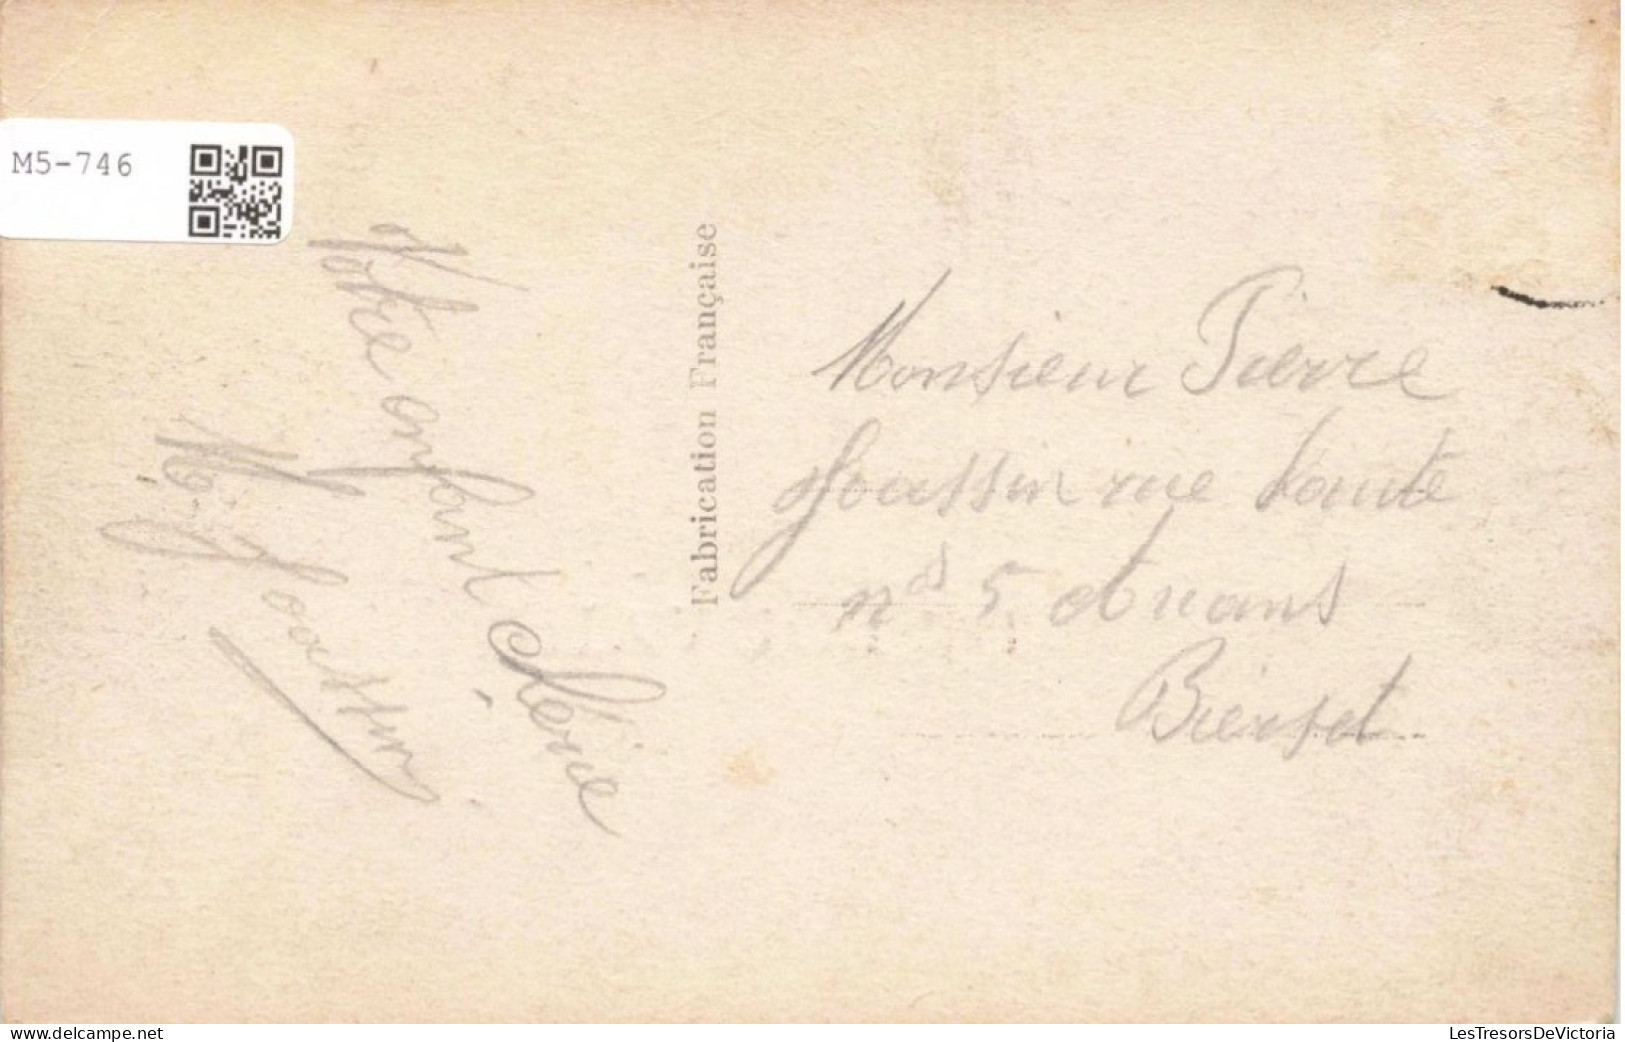 M5-746
Votre enfant chérie
M. J. Joussin
Fabrication Française
Monsieur Pierre
Joussin rue
n° 5 Awans
Bierset
www.delcampe.net
LesTresorsDeVictoria